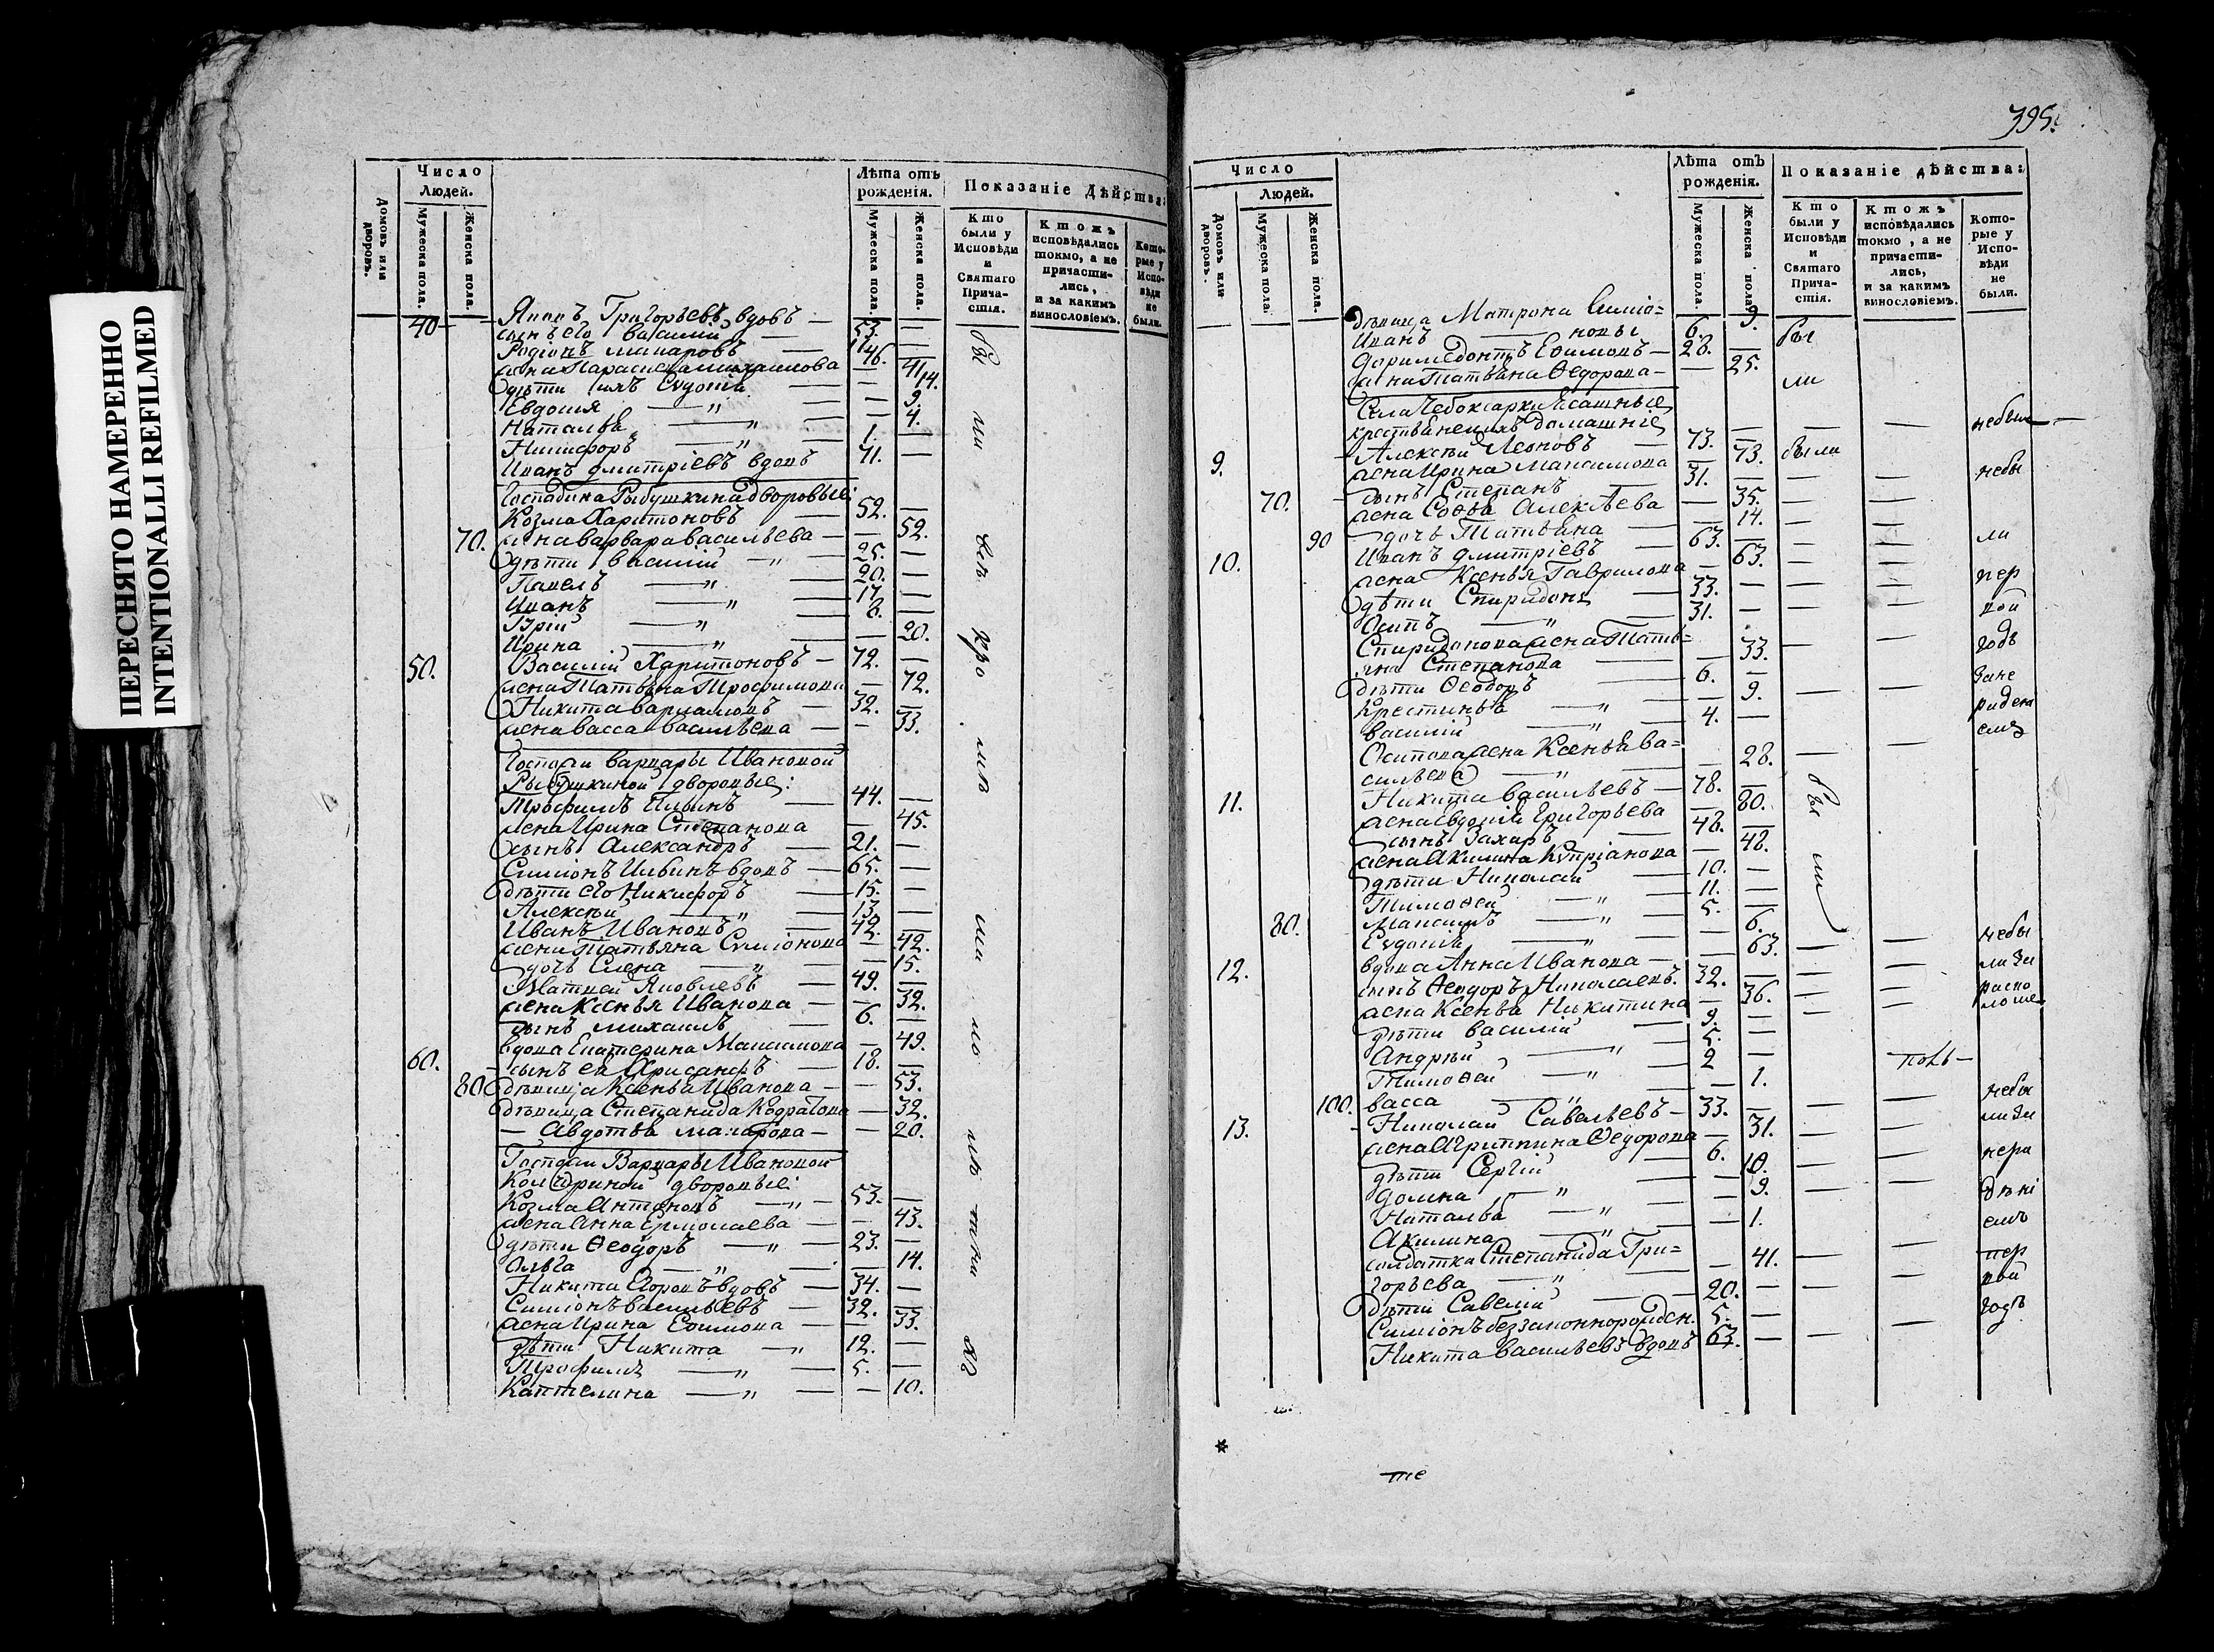 ПЕРЕСНЯТО НАМЕРЕННО
INTENTIONALLI REFILMED
Число
Людей.
Домовъ или дворовъ.
Мужеска пола.
Женска пола.
Лѣта отъ рожденія.
Мужеска пола.
Женска пола.
Показаніе Дѣйства:
Кто были у Исповѣди и Святаго Причастія.
Ктожъ исповѣдались токмо, а не причастились, и за какимъ винословіемъ.
Которые у Исповѣди не были.
Григорьевъ вдовъ — 53. —
40 сынъ его Василий —
Родіонъ Макаровъ — 46. —
жена Параскева Михаилова 41
дѣти ихъ Евдокія — — 14.
Евдокия — „ — — 9.
Наталья — „ — — 4.
Никифоръ — „ — 1. —
Иванъ Дмитріевъ вдовъ 71. —
Господина Рыбушкина дворовые
Козма Харитоновъ — 52. —
70. жена Варвара Васильева — — 52.
дѣти Василий — „ 25. —
Павелъ — „ — 20. —
Иванъ — „ — 17. —
Юрій — „ — 8. —
Ирина — „ — — 20.
50. Василий Харитоновъ — 72. —
жена Татьяна Трофимова — 72.
Никита Варламовъ — 32. —
жена Васса Васильева — — 33.
Госпожи Варвары Ивановой
Рыбушкиной дворовые:
Трофимъ Ильинъ — 44. —
жена Ирина Степанова — 45.
сынъ Александръ — 21. —
Симіонъ Ильинъ вдовъ — 65. —
дѣти его Никифоръ — 15. —
Алексѣй — „ — 13. —
Иванъ Ивановъ — 42. —
жена Татьяна Симіонова — 42.
дочь Елена — „ — — 15.
Матвей Яковлевъ — 49. —
жена Ксенья Иванова — — 32.
сынъ Михаилъ — 6. —
вдова Екатерина Максимова — 49.
60. сынъ ея Хрисанфъ — 18. —
80. дѣвица Ксенья Иванова — — 53.
дѣвица Степанида Кодратова — 32.
— Авдотья Макарова — — 20.
Госпожи Варвары Ивановой
дворовые:
Козма Антоновъ — „ — 53. —
жена Анна Ермолаева — — 43.
дѣти Ѳеодоръ — „ — 23. —
Ольга — „ — — 14.
Никита Егоровъ вдовъ — 34. —
Симіонъ Васильевъ — 32. —
жена Ирина Ефимова — — 33.
дѣти Никита — „ 12. —
Трофимъ — „ — 5. —
Каптелина — „ — — 10.
395.
Число
Людей.
Домовъ или дворовъ.
Мужеска пола.
Женска пола.
Лѣта отъ рожденія.
Мужеска пола.
Женска пола.
Показаніе дѣйства:
Кто были у Исповѣди и Святаго Причастія.
Ктожъ исповѣдались токмо, а не причастились, и за какимъ винословіемъ.
Которые у Исповѣди не были.
дѣвица Матрона Симіо= 9.
Иванъ — новы 6. — бы
Доримедонтъ Ефимовъ — 28. —
жена Татьяна Ѳедорова — — 25. ли
Села Чебоксарки Ясашные
крестьяне и ихъ домашніе
9. Алексѣй Леоновъ — 73. — были
жена Ирина Максимова — 73.
70. сынъ Степанъ — 31. — небы
жена Софья Алексѣева — 35.
90 дочь Татьяна — — 14.
10. Иванъ Дмитріевъ — 63. — ли
жена Ксенья Гаврилова — 63.
дѣти Спиридонъ — 33. — пер
Осипъ — „ — 31. — вой
Спиридонова жена Татья= годъ
на Степанова — — 33.
дѣти Ѳеодоръ — 6. —
Крестинья — „ — — 9.
Василий — „ — 4. —
Осипова жена Ксенья Ва=
сильева — „ — — 28. —
11. Никита Васильевъ — 78. — бы
жена Евдокія Григорьева — 80.
сынъ Захаръ — 48. —
жена Акилина Купріанова — 48. ли
дѣти Николай — 10. —
Тимоѳей — „ — 11. —
80. Максимъ — „ — 5. —
Евдокія — „ — — 6.
12. вдова Анна Иванова — — 63. небы
сынъ Ѳеодоръ Николаевъ. 32. —
жена Ксенья Никитина — 36.
дѣти Василий — 9. —
Андрѣй — „ — 5. —
Тимоѳей — „ — 2 —
100. Васса — „ — — 1.
13. Николай Савельевъ — 33. — небы
жена Агрипина Ѳедорова — 31.
дѣти Сергій — 6. —
Домна — „ — — 10.
Наталья — „ — — 9.
Акилина — „ — — 1.
солдатка Степанида Гри=
горьева — „ — — 41. — пер
дѣти Савелій — — 20. — вой
Симіонъ беззаконнорожден. 5. — годъ
Никита Васильевъ вдовъ 63. —
те